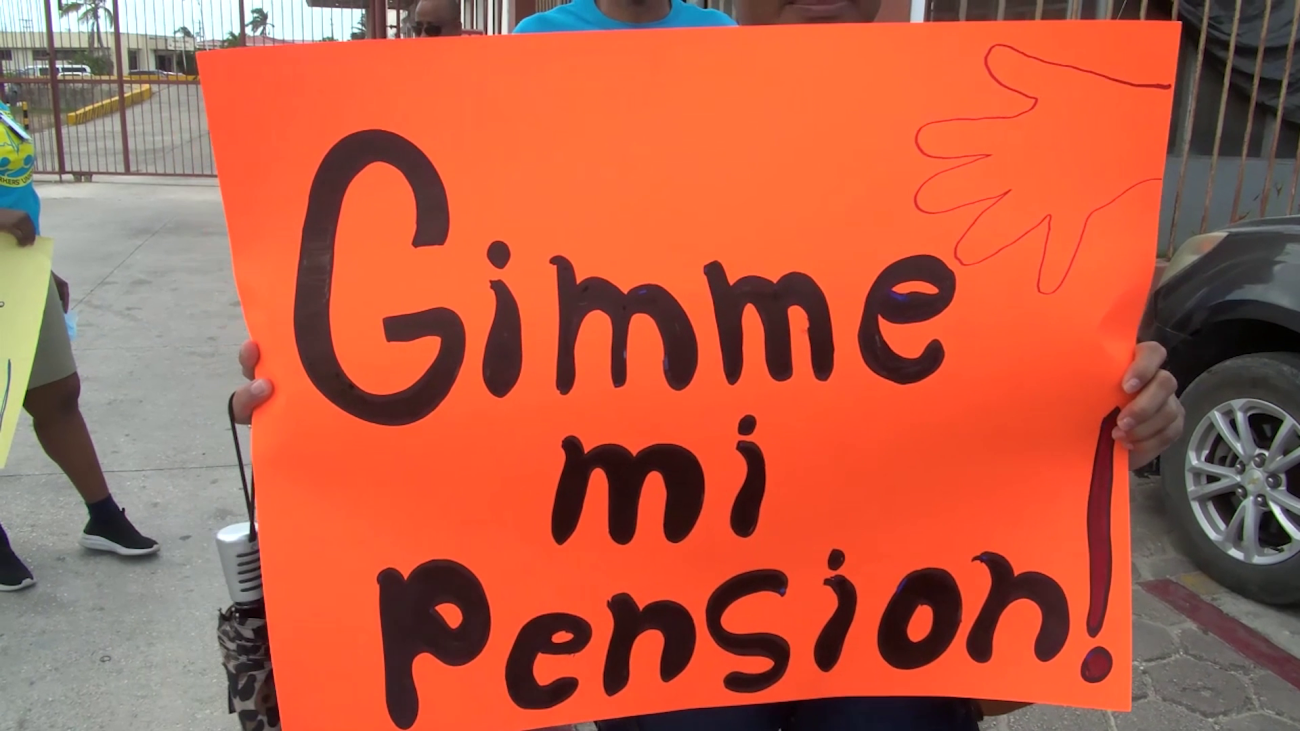 Gimme
mi
Pension!